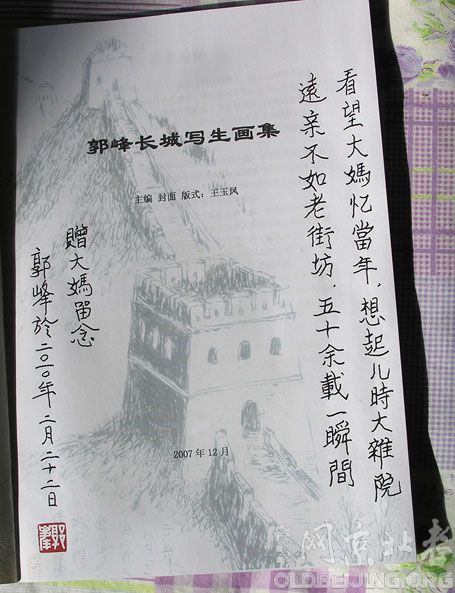 看望大媽忆當年，想起儿時大雜院
遠亲不如老街坊．五十余载一瞬間
郭峰长城写生画集
主编 封面 版式：王玉凤
贈大媽留念
郭峰於二〇一〇年二月二十二日
2007 年 12 月
网京北老
OLDBEIJING.ORG